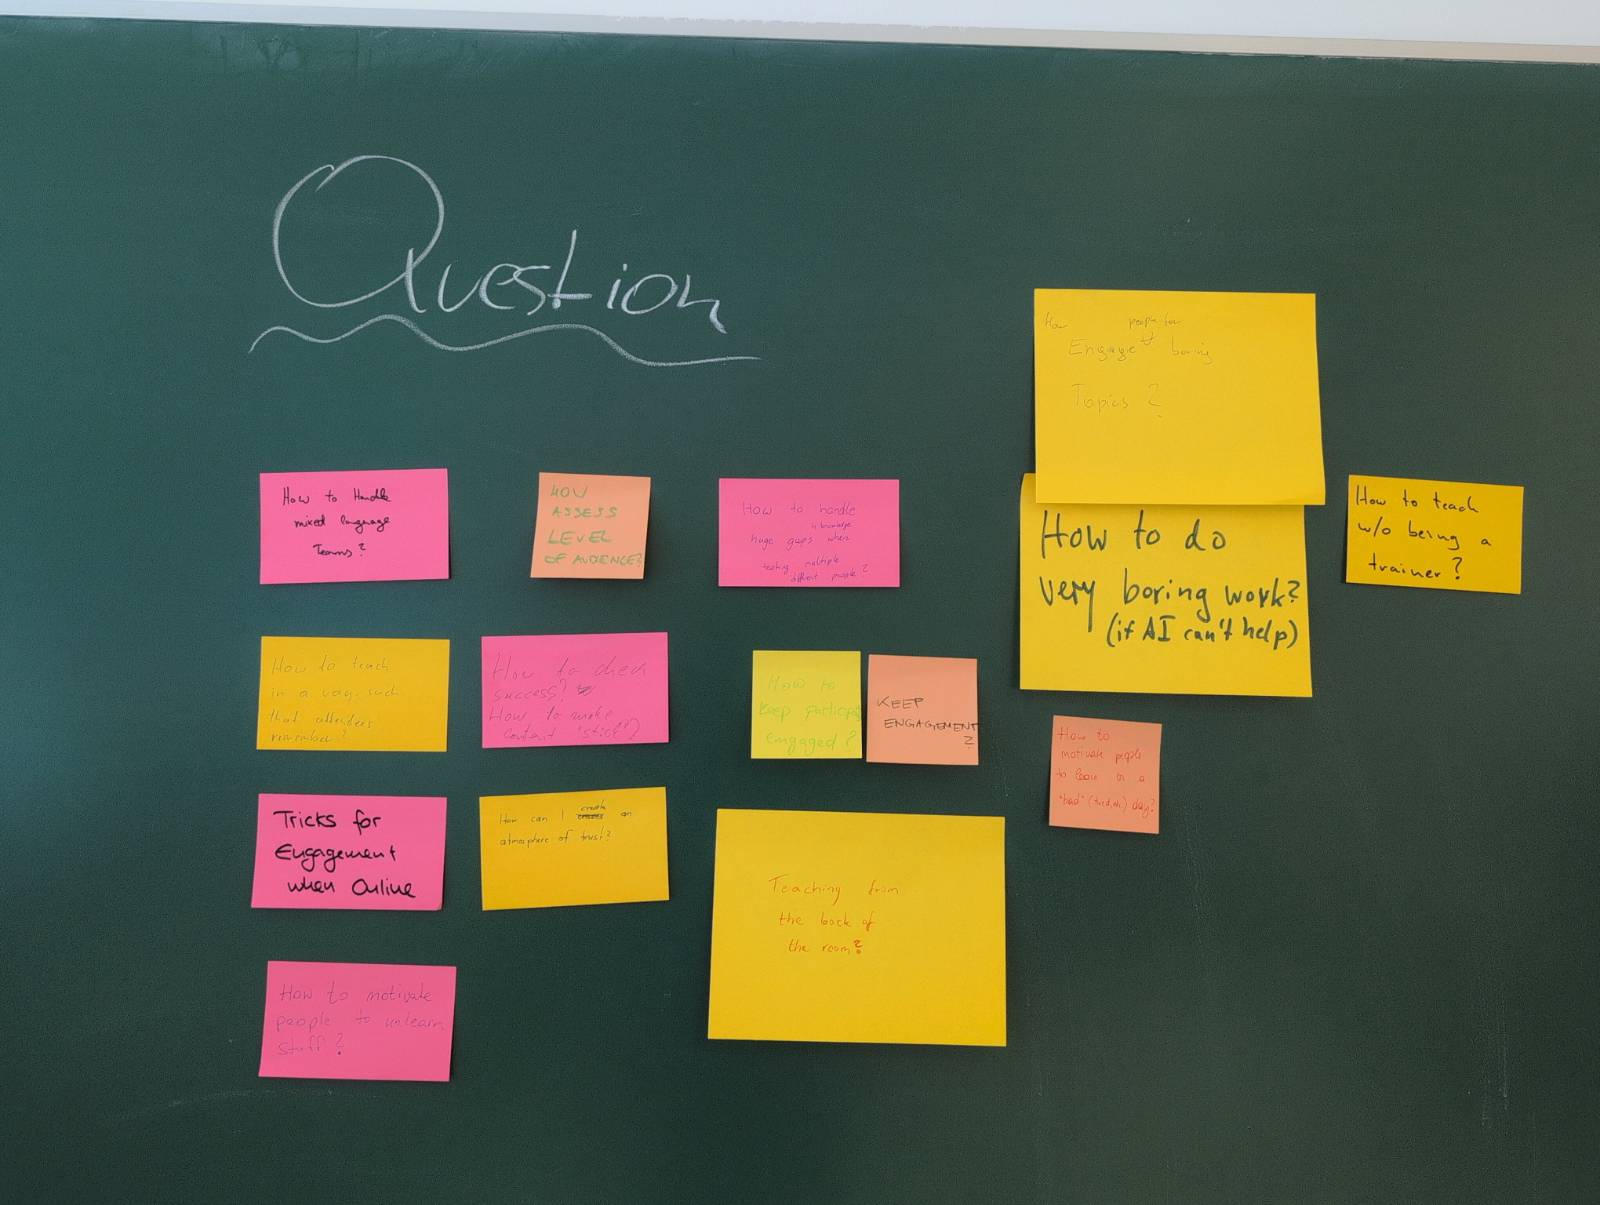 Question
How to Handle
mixed language
Teams?
HOW
ASSESS
LEVEL
OF AUDIENCE?
How to handle
knowledge
huge gaps when
multiple
different people?
How people for
Engage boring
Topics?
How to do
very boring work?
(if AI can't help)
How to teach
w/o being a
trainer?
How to teach
in a way such
that attendees
remember?
How to check
success?
How to make
content "stick"?
How to
keep
engaged?
KEEP
ENGAGEMENT
?
How to
motivate people
to learn on a
"bad" day?
Tricks for
Engagement
when Online
create
How can I an
atmosphere of trust?
Teaching from
the back of
the room?
How to motivate
people to unlearn
stuff?